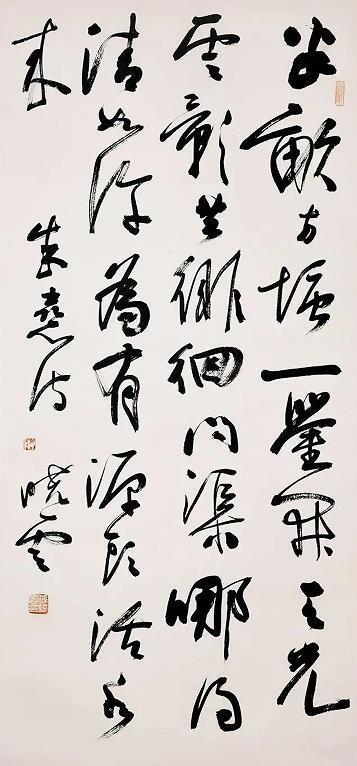 半畝方塘一鑒開天光
雲影共徘徊問渠哪得
清如許為有源頭活水
來
朱熹詩
曉雲